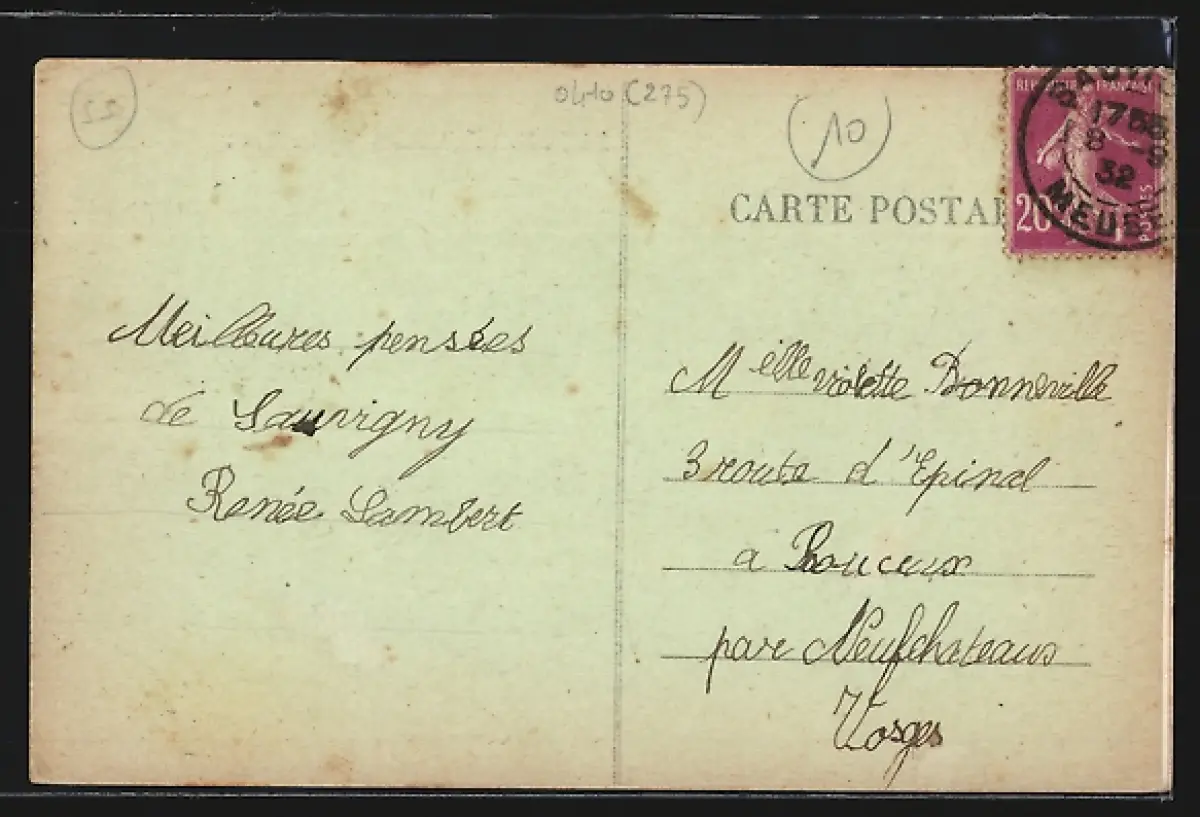 0410 (275)
10
CARTE POSTAL
REPUBLIQUE FRANÇAISE
20
POSTES
SAUVIG
17
8 -9
32
MEUSE
Meilleures pensées
de Sauvigny
Renée Lambert
Melle Violette Bonneville
3 route d'Epinal
a Rouceux
par Neufchateaux
Vosges